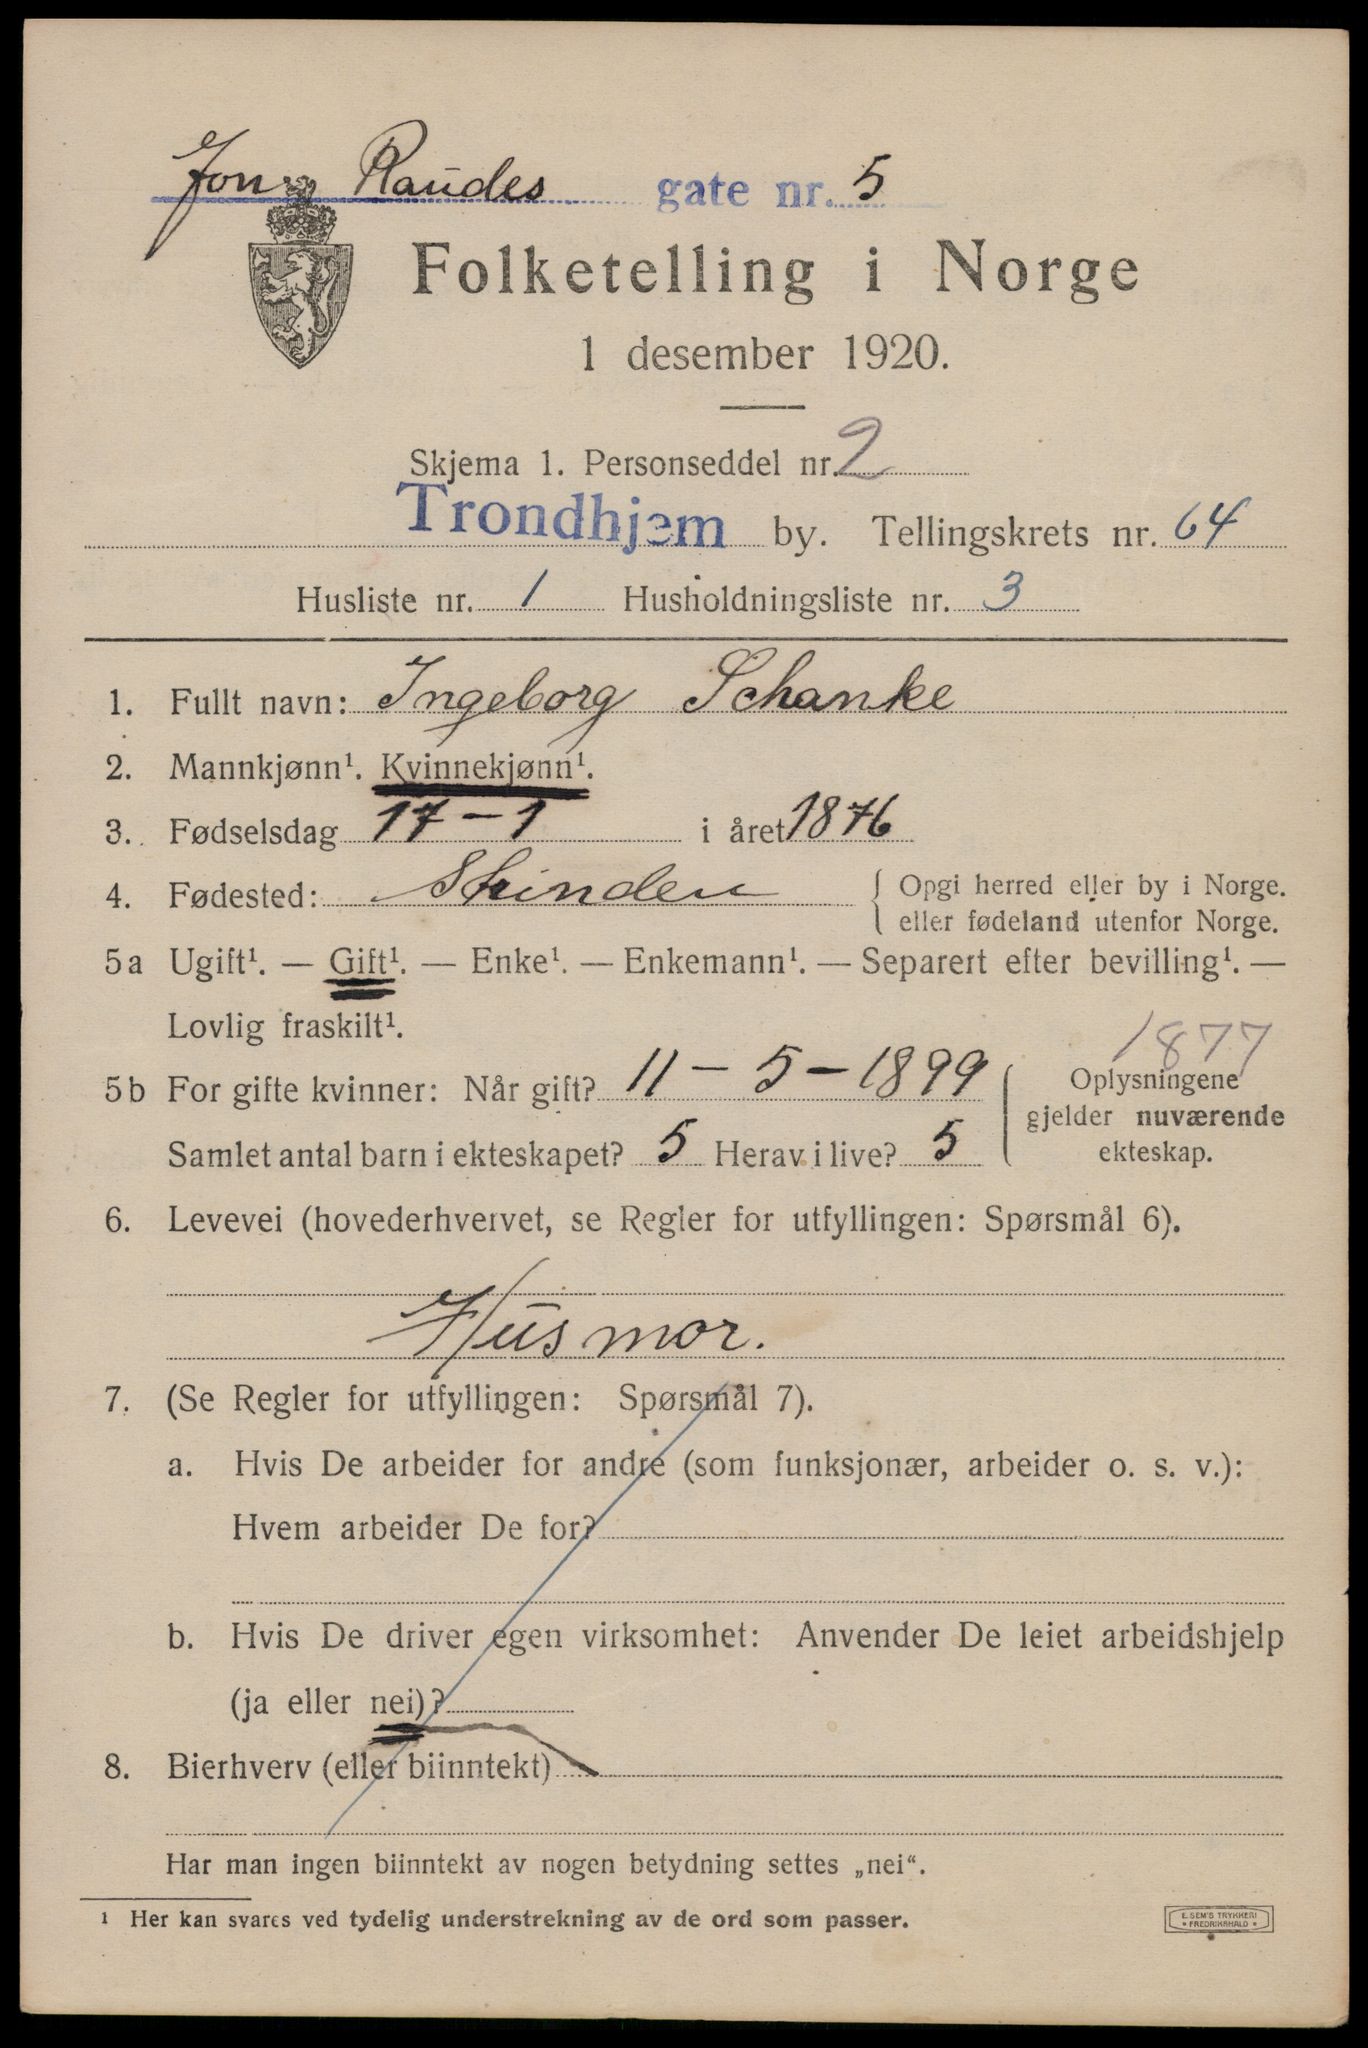 Jon Raudes gate nr. 5
Folketelling i Norge
1 desember 1920.
Skjema 1. Personseddel nr. 2
Trondhjem by. Tellingskrets nr. 64
Husliste nr. 1 Husholdningsliste nr. 3
1. Fullt navn: Ingeborg Schanke
2. Mannkjønn¹. Kvinnekjønn¹.
3. Fødselsdag 17-1 i året 1876
4. Fødested: Strinden { Opgi herred eller by i Norge.
eller fødeland utenfor Norge.
5a Ugift¹. — Gift¹. — Enke¹. — Enkemann¹. — Separert efter bevilling¹. —
Lovlig fraskilt¹.
1877
5b For gifte kvinner: Når gift? 11-5-1899 Oplysningene
gjelder nuværende
Samlet antal barn i ekteskapet? 5 Herav i live? 5 ekteskap.
6. Levevei (hovederhvervet, se Regler for utfyllingen: Spørsmål 6).
Husmor.
7. (Se Regler for utfyllingen: Spørsmål 7).
a. Hvis De arbeider for andre (som funksjonær, arbeider o. s. v.):
Hvem arbeider De for?
b. Hvis De driver egen virksomhet: Anvender De leiet arbeidshjelp
(ja eller nei)?
8. Bierhverv (eller biinntekt)
Har man ingen biinntekt av nogen betydning settes „nei“.
¹ Her kan svares ved tydelig understrekning av de ord som passer.
E. SEM'S TRYKKERI
• FREDRIKSHALD •